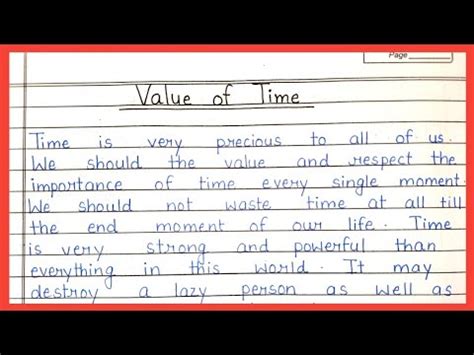 Page
Value of Time
Time is very precious to all of us.
We should the value and respect the
importance of time every single moment.
We should not waste time at all till
the end moment of our life. Time
is very strong and powerful than
everything in this world. It may
destroy a lazy person as well as